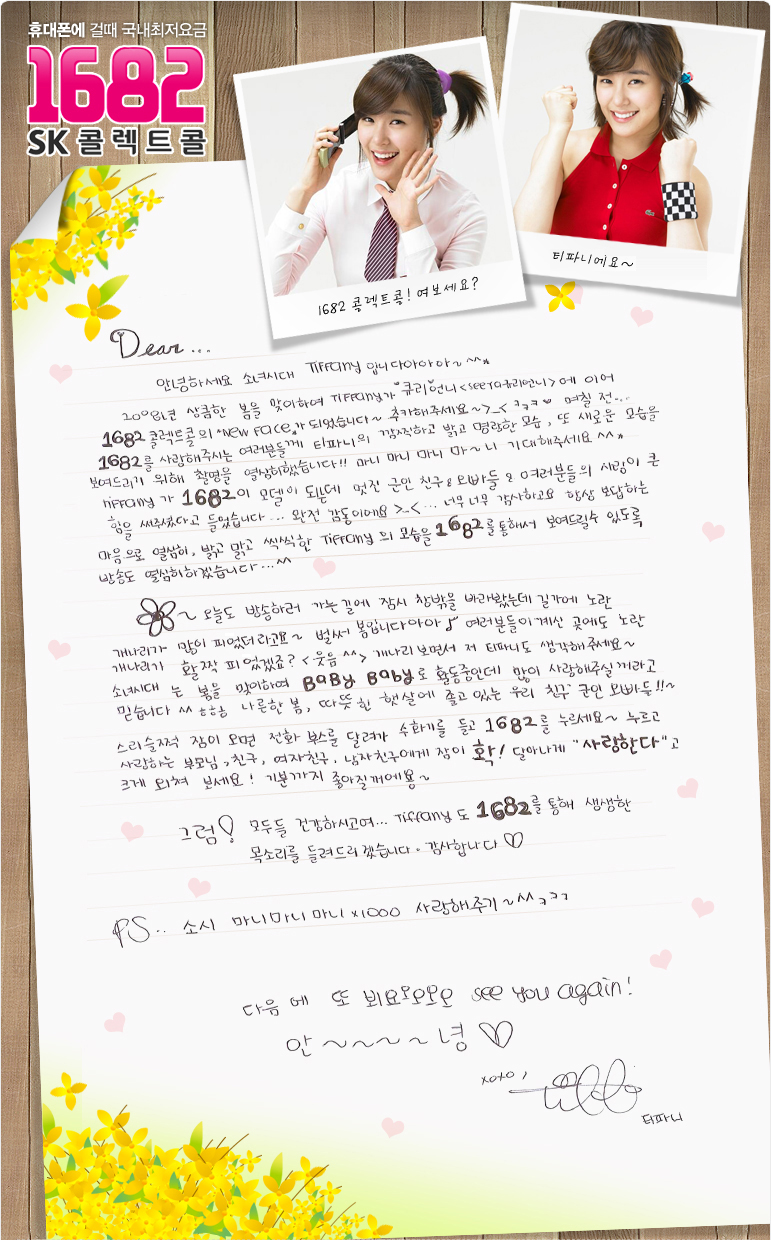 휴대폰에 걸때 국내최저요금
1682
SK 콜렉트콜
1682 콜렉트콜! 여보세요?
티파니에요~
Dear...
안녕하세요 소녀시대 Tiffany 입니다아아아~ ^^*
2008년 상큼한 봄을 맞이하여 Tiffany가 "큐리"언니<see ya큐리언니>에 이어
1682 콜렉트콜의 "New Face"가 되었습니다~ 추카해주세요~>_< ㅋㅋㅋ 며칠 전...
1682를 사랑해주시는 여러분들께 티파니의 깜찍하고 밝고 명랑한 모습, 또 새로운 모습을
보여드리기 위해 촬영을 열심히했습니다!! 마니 마니 마니 마~니 기대해주세요 ^^*
Tiffany가 1682의 모델이 되는데 멋진 군인 친구& 오빠들& 여러분들의 사랑이 큰
힘을 써주셨다고 들었습니다... 완전 감동이에요 >_<... 너무 너무 감사하고요 항상 보답하는
마음으로 열심히, 밝고 맑고 씩씩한 Tiffany의 모습을 1682를통해서 보여드릴수 있도록
방송도 열심히하겠습니다...^^
~ 오늘도 방송하러 가는길에 잠시 창밖을 바라봤는데 길가에 노란
개나리가 많이 피었더라고요~ 벌써 봄입니다아아♪ 여러분들이 계신 곳에도 노란
개나리가 활짝 피었겠죠? <웃음^^> 개나리보면서 저 티파니도 생각해주세요~
소녀시대 는 봄을 맞이하여 BaBy BaBy로 활동중인데 많이 사랑해주실꺼라고
믿습니다 ^^ ㅎㅎㅎ 나른한 봄, 따뜻한 햇살에 졸고 있는 우리 친구 군인 오빠들!!~
스리슬쩍 잠이 오면 전화 부스를 달려가 수화기를 들고 1682를 누르세요~ 누르고
사랑하는 부모님, 친구, 여자친구. 남자친구에게 잠이 확! 달아나게 "사랑한다"고
크게 외쳐 보세요! 기분까지 좋아질꺼에용~
그럼! 모두들 건강하시고여... Tiffany도 1682를통해 생생한
목소리를 들려드리겠습니다. 감사합니다♡
PS.. 소시 마니마니마니x1000 사랑해주기~^^ ㅋㅋㅋ
다음에 또 뵈요오오오오 see you again!
안~~~~~녕♡
xoxo,
티파니